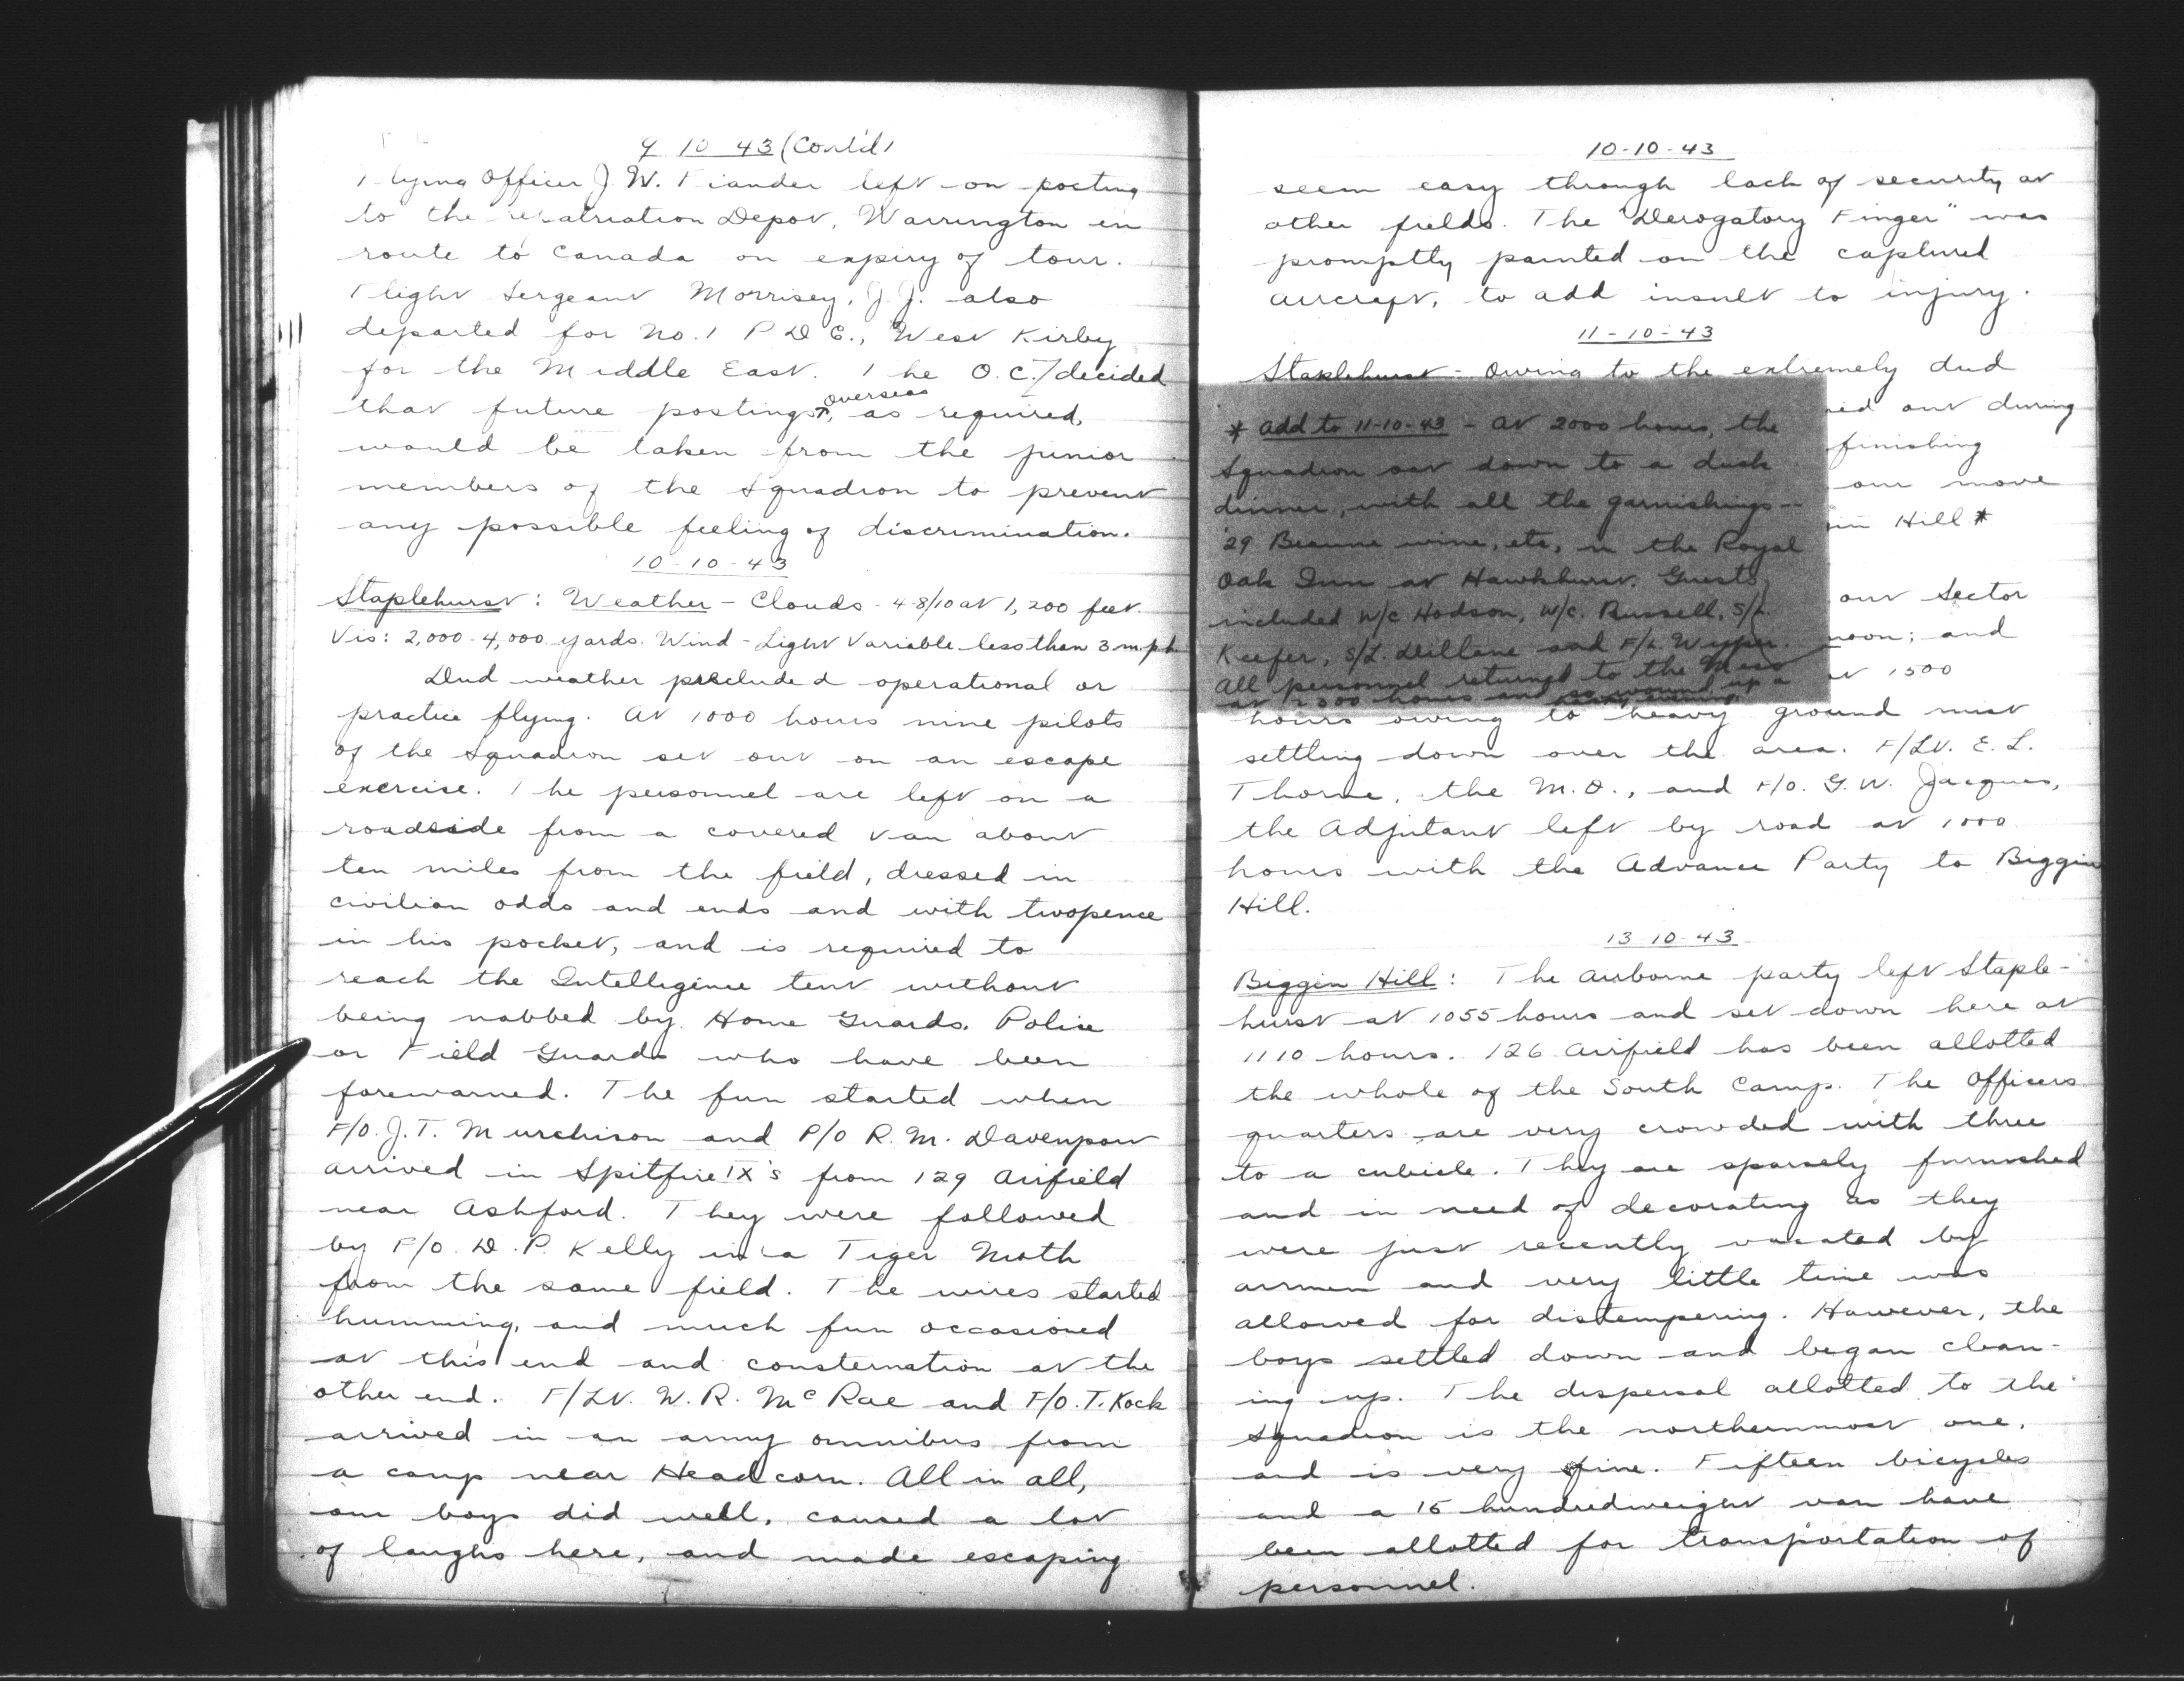 9 10 43 (Cont'd)
Flying Officer J. W. Fiander left on posting
to the repatriation Depot, Warrington en
route to Canada on expiry of tour.
Flight Sergeant Morrisey, J. J. also
departed for No. 1 P D C., West Kirby
for the Middle East. The O. C. decided
that future postings overseas, as required,
would be taken from the junior
members of the Squadron to prevent
any possible feeling of discrimination.
10-10-43
Staplehurst: Weather - Clouds - 4-8/10 at 1,200 feet.
Vis: 2,000-4,000 yards. Wind - Light Variable less than 3 m.p.h.
Dud weather precluded operational or
practice flying. At 1000 hours nine pilots
of the Squadron set out on an escape
exercise. The personnel are left on a
roadside from a covered van about
ten miles from the field, dressed in
civilian odds and ends and with twopence
in his pocket, and is required to
reach the Intelligence tent without
being nabbed by Home Guards, Police
or Field Guards who have been
forewarned. The fun started when
F/O. J. T. Murchison and P/O R. M. Davenport
arrived in Spitfire IX's from 129 Airfield
near Ashford. They were followed
by F/O. D. P. Kelly in a Tiger Moth
from the same field. The wires started
humming, and much fun occasioned
at this end and consternation at the
other end. F/Lt. W. R. McRae and F/O. T. Koch
arrived in an army omnibus from
a camp near Headcorn. All in all,
our boys did well, caused a lot
of laughs here, and made escaping
10-10-43
seem easy through lack of security at
other fields. The "Derogatory Finger" was
promptly painted on the captured
aircraft, to add insult to injury.
11-10-43
Staplehurst - Owing to the extremely dud
out during
finishing
our move
Hill *
* Add to 11-10-43 - At 2000 hours, the
Squadron sat down to a duck
dinner, with all the garnishings --
'29 Beaune wine, etc, in the Royal
Oak Inn at Hawkhurst. Guests
included W/C Hodson, W/C. Russell, S/L.
Keefer, S/L. Dillane and F/L. Wyper.
All personnel returned to the Mess
at 2300 hours and so wound up a
our Sector
noon; and
at 1500
hours owing to heavy ground mist
settling down over the area. F/Lt. E. L.
Thorne, the M. O., and F/O. G. W. Jacques,
the Adjutant left by road at 1000
hours with the Advance Party to Biggin
Hill.
13-10-43
Biggin Hill: The airborne party left Staple-
hurst at 1055 hours and set down here at
1110 hours. 126 Airfield has been allotted
the whole of the South Camp. The Officers
quarters are very crowded with three
to a cubicle. They are sparsely furnished
and in need of decorating as they
were just recently vacated by
airmen and very little time was
allowed for distempering. However, the
boys settled down and began clean-
ing up. The dispersal allotted to the
Squadron is the northernmost one,
and is very fine. Fifteen bicycles
and a 15 hundredweight van have
been allotted for transportation of
personnel.